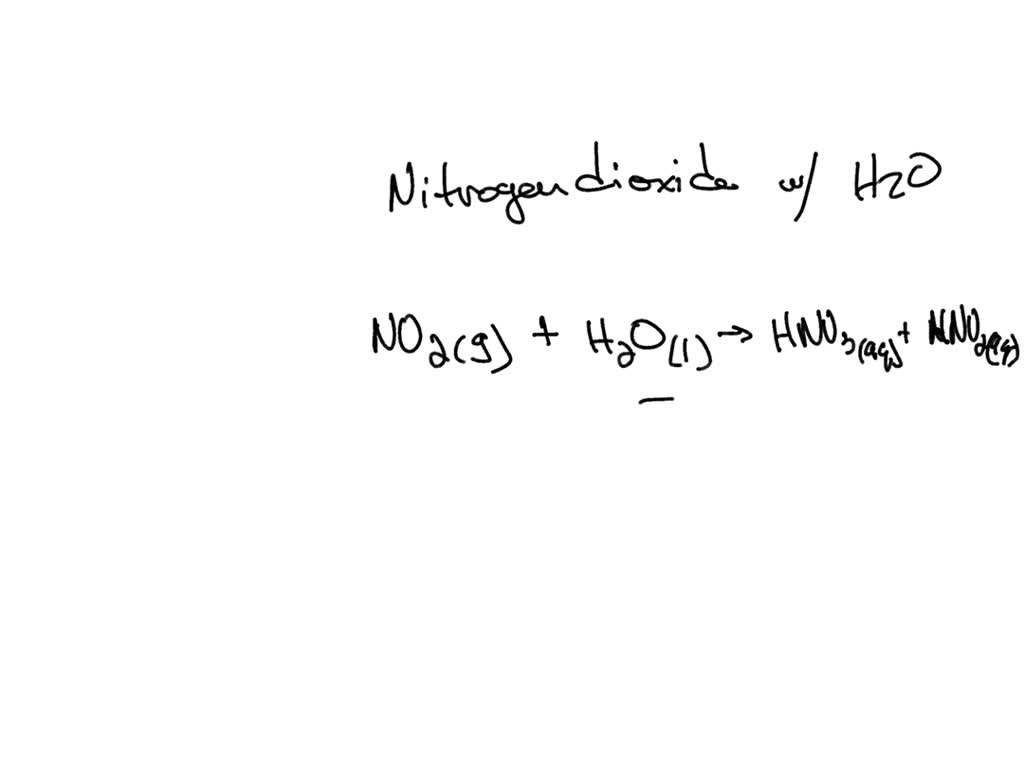 Nitrogen dioxide w/ H2O
NO2(g) + H2O(l) → HNO3(aq) + HNO2(aq)